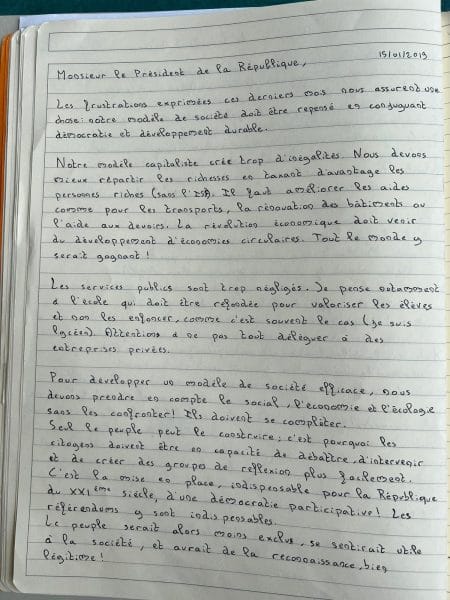 15/01/2019
Monsieur le Président de la République,
Les frustrations exprimées ces derniers mois nous assurent une
chose: notre modèle de société doit être repensé en conjuguant
démocratie et développement durable.
Notre modèle capitaliste crée trop d'inégalités. Nous devons
mieux répartir les richesses en taxant d'avantage les
personnes riches (sans l'ISF). Il faut améliorer les aides
comme pour les transports, la rénovation des bâtiments ou
l'aide aux devoirs. La révolution économique doit venir
du développement d'économies circulaires. Tout le monde y
serait gagnant!
Les services publics sont trop négligés. Je pense notamment
a l'école qui doit être refondée pour valoriser les élèves
et non les enfoncer, comme c'est souvent le cas (je suis
lycéen). Attentions a ne pas tout délèguer à des
entreprises privées.
Pour développer un modèle de société efficace, nous
devons prendre en compte le social, l'économie et l'écologie
sans les confronter! Ils doivent se compléter.
Seul le peuple peut le construire; c'est pourquoi les
citoyens doivent être en capacité de débattre, d'intervenir
et de créer des groupes de réflexion plus facilement.
C'est la mise en place, indispensable pour la République
du XXIème siècle, d'une démocratie participative! Les
référendums y sont indispensables.
Le peuple serait alors moins exclus, se sentirait utile
à la société, et aurait de la reconnaissance, bien
légitime!